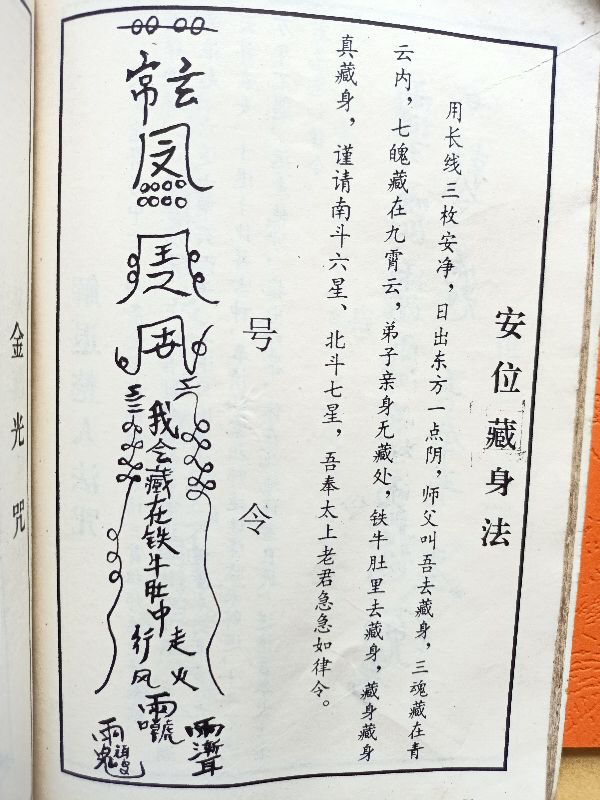 安位藏身法
用长线三枚安净，日出东方一点阴，师父叫吾去藏身，三魂藏在青
云内，七魄藏在九霄云，弟子亲身无藏处，铁牛肚里去藏身，藏身藏身
真藏身，谨请南斗六星、北斗七星，吾奉太上老君急急如律令。
号令
我会藏在铁牛肚中
走火
行风
金光咒